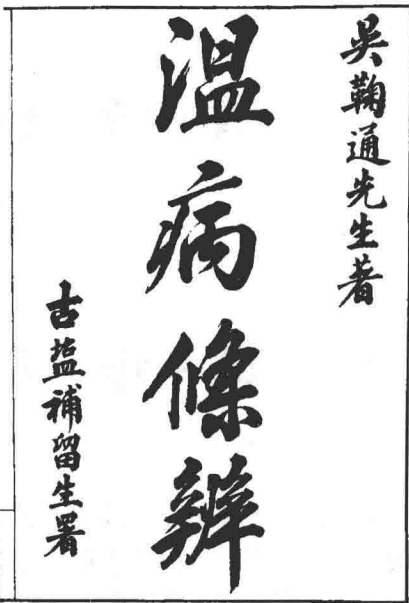 吴鞠通先生著
温病條辨
古盐補留生署